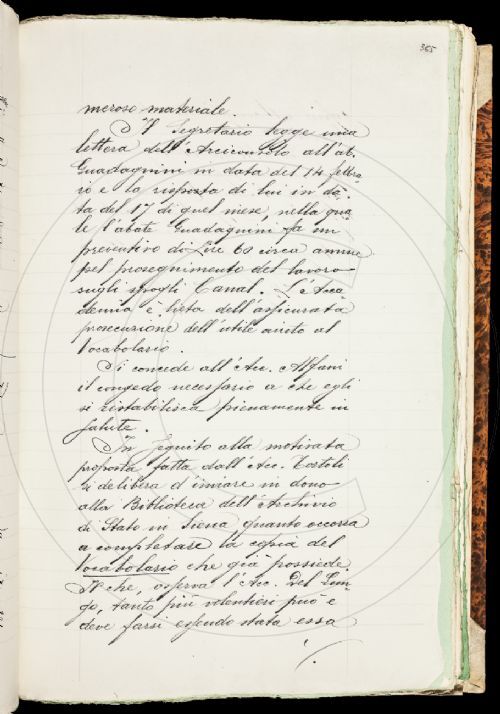 365
meroso materiale.
Il Segretario legge una
lettera dell'Arciconsolo all'ab.
Guadagnini in data del 14 febbra-
io e la risposta di lui in da-
ta del 17 di quel mese, nella qua-
le l'abate Guadagnini fa un
preventivo di Lire 60 circa annue
pel proseguimento del lavoro
sugli spogli Canal. L'Acca-
demia è lieta dell'assicurata
prosecuzione dell'utile aiuto al
Vocabolario.
Si concede all'Acc. Alfani
il congedo necessario a che egli
si ristabilisca pienamente in
salute.
In seguito alla motivata
proposta fatta dall'Acc. Tortoli
si delibera d'inviare in dono
alla Biblioteca dell'Archivio
di Stato in Siena quanto occorra
a completare la copia del
Vocabolario che già possiede.
Il che, osserva l'Acc. Del Lun-
go, tanto più volentieri può e
deve farsi essendo stata essa